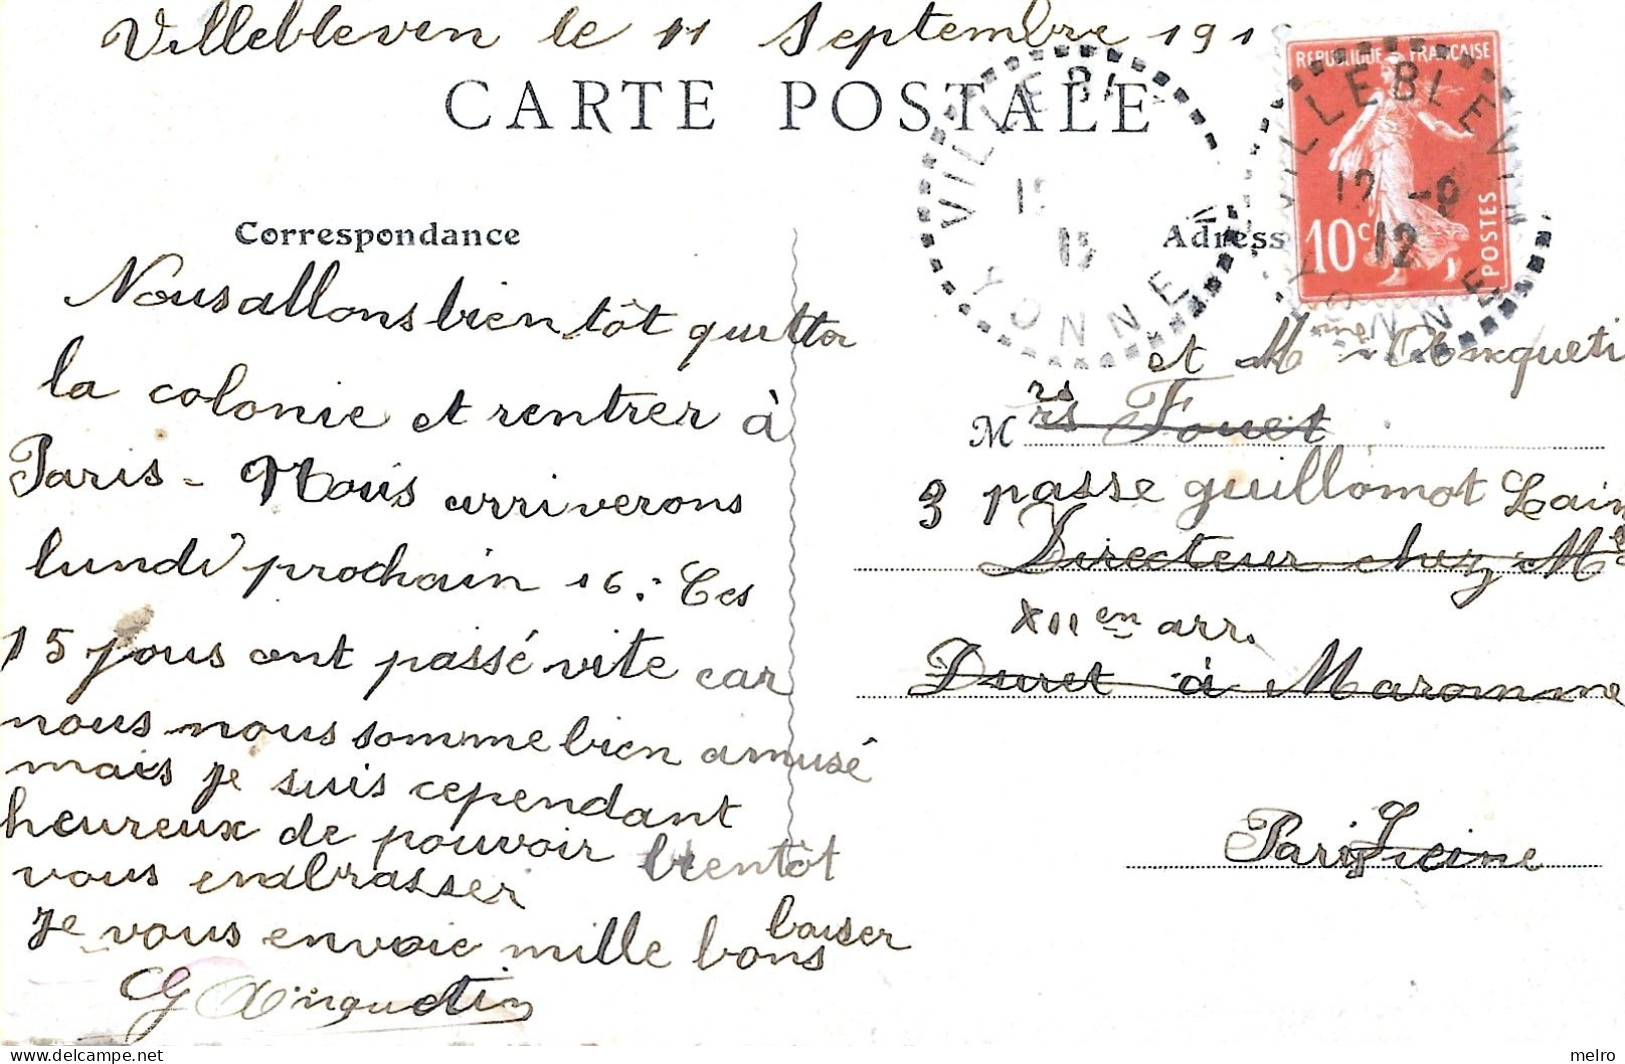 Villebleven le 11 Septembre 191
CARTE POSTALE
REPUBLIQUE FRANCAISE
10c
POSTES
VILLEBLEVIN
12 -9
12
YONNE
VILLEBL
12
YONNE
Correspondance
Nous allons bientôt quitter
la colonie et rentrer à
Paris - Nous arriverons
lundi prochain 16. Ces
15 jous ont passé vite car
nous nous somme bien amusé
mais je suis cependant
heureux de pouvoir bientôt
vous embrasser
Je vous envoie mille bons
baiser
G Anquetin
Adress
et Mme Anqueti
Mrs Fouet
rs
3 passe guillomot Lain
Directeur chez Mr
XIIen arr.
Duret à Maromme
Paris
melro